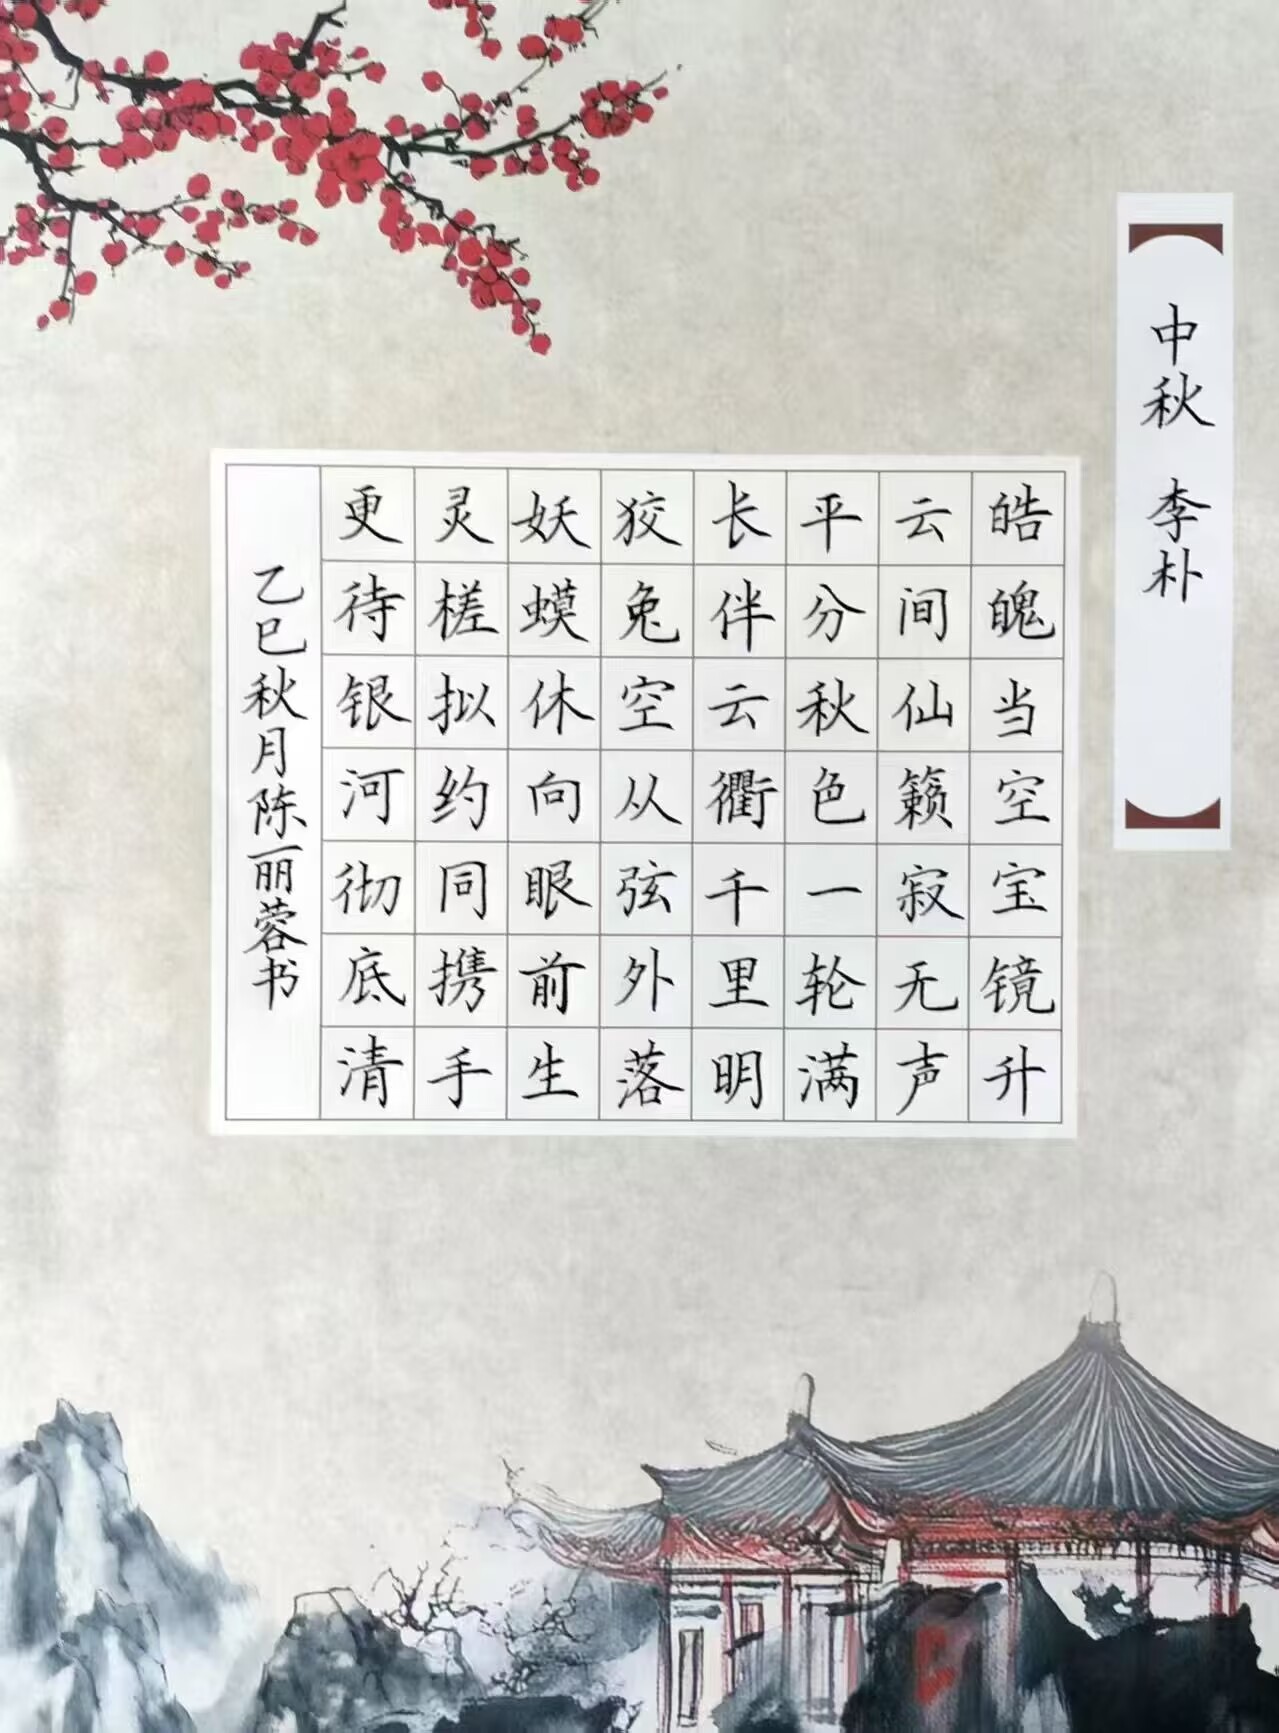 中秋 李朴
皓魄当空宝镜升
云间仙籁寂无声
平分秋色一轮满
长伴云衢千里明
狡兔空从弦外落
妖蟆休向眼前生
灵槎拟约同携手
更待银河彻底清
乙巳秋月陈丽蓉书